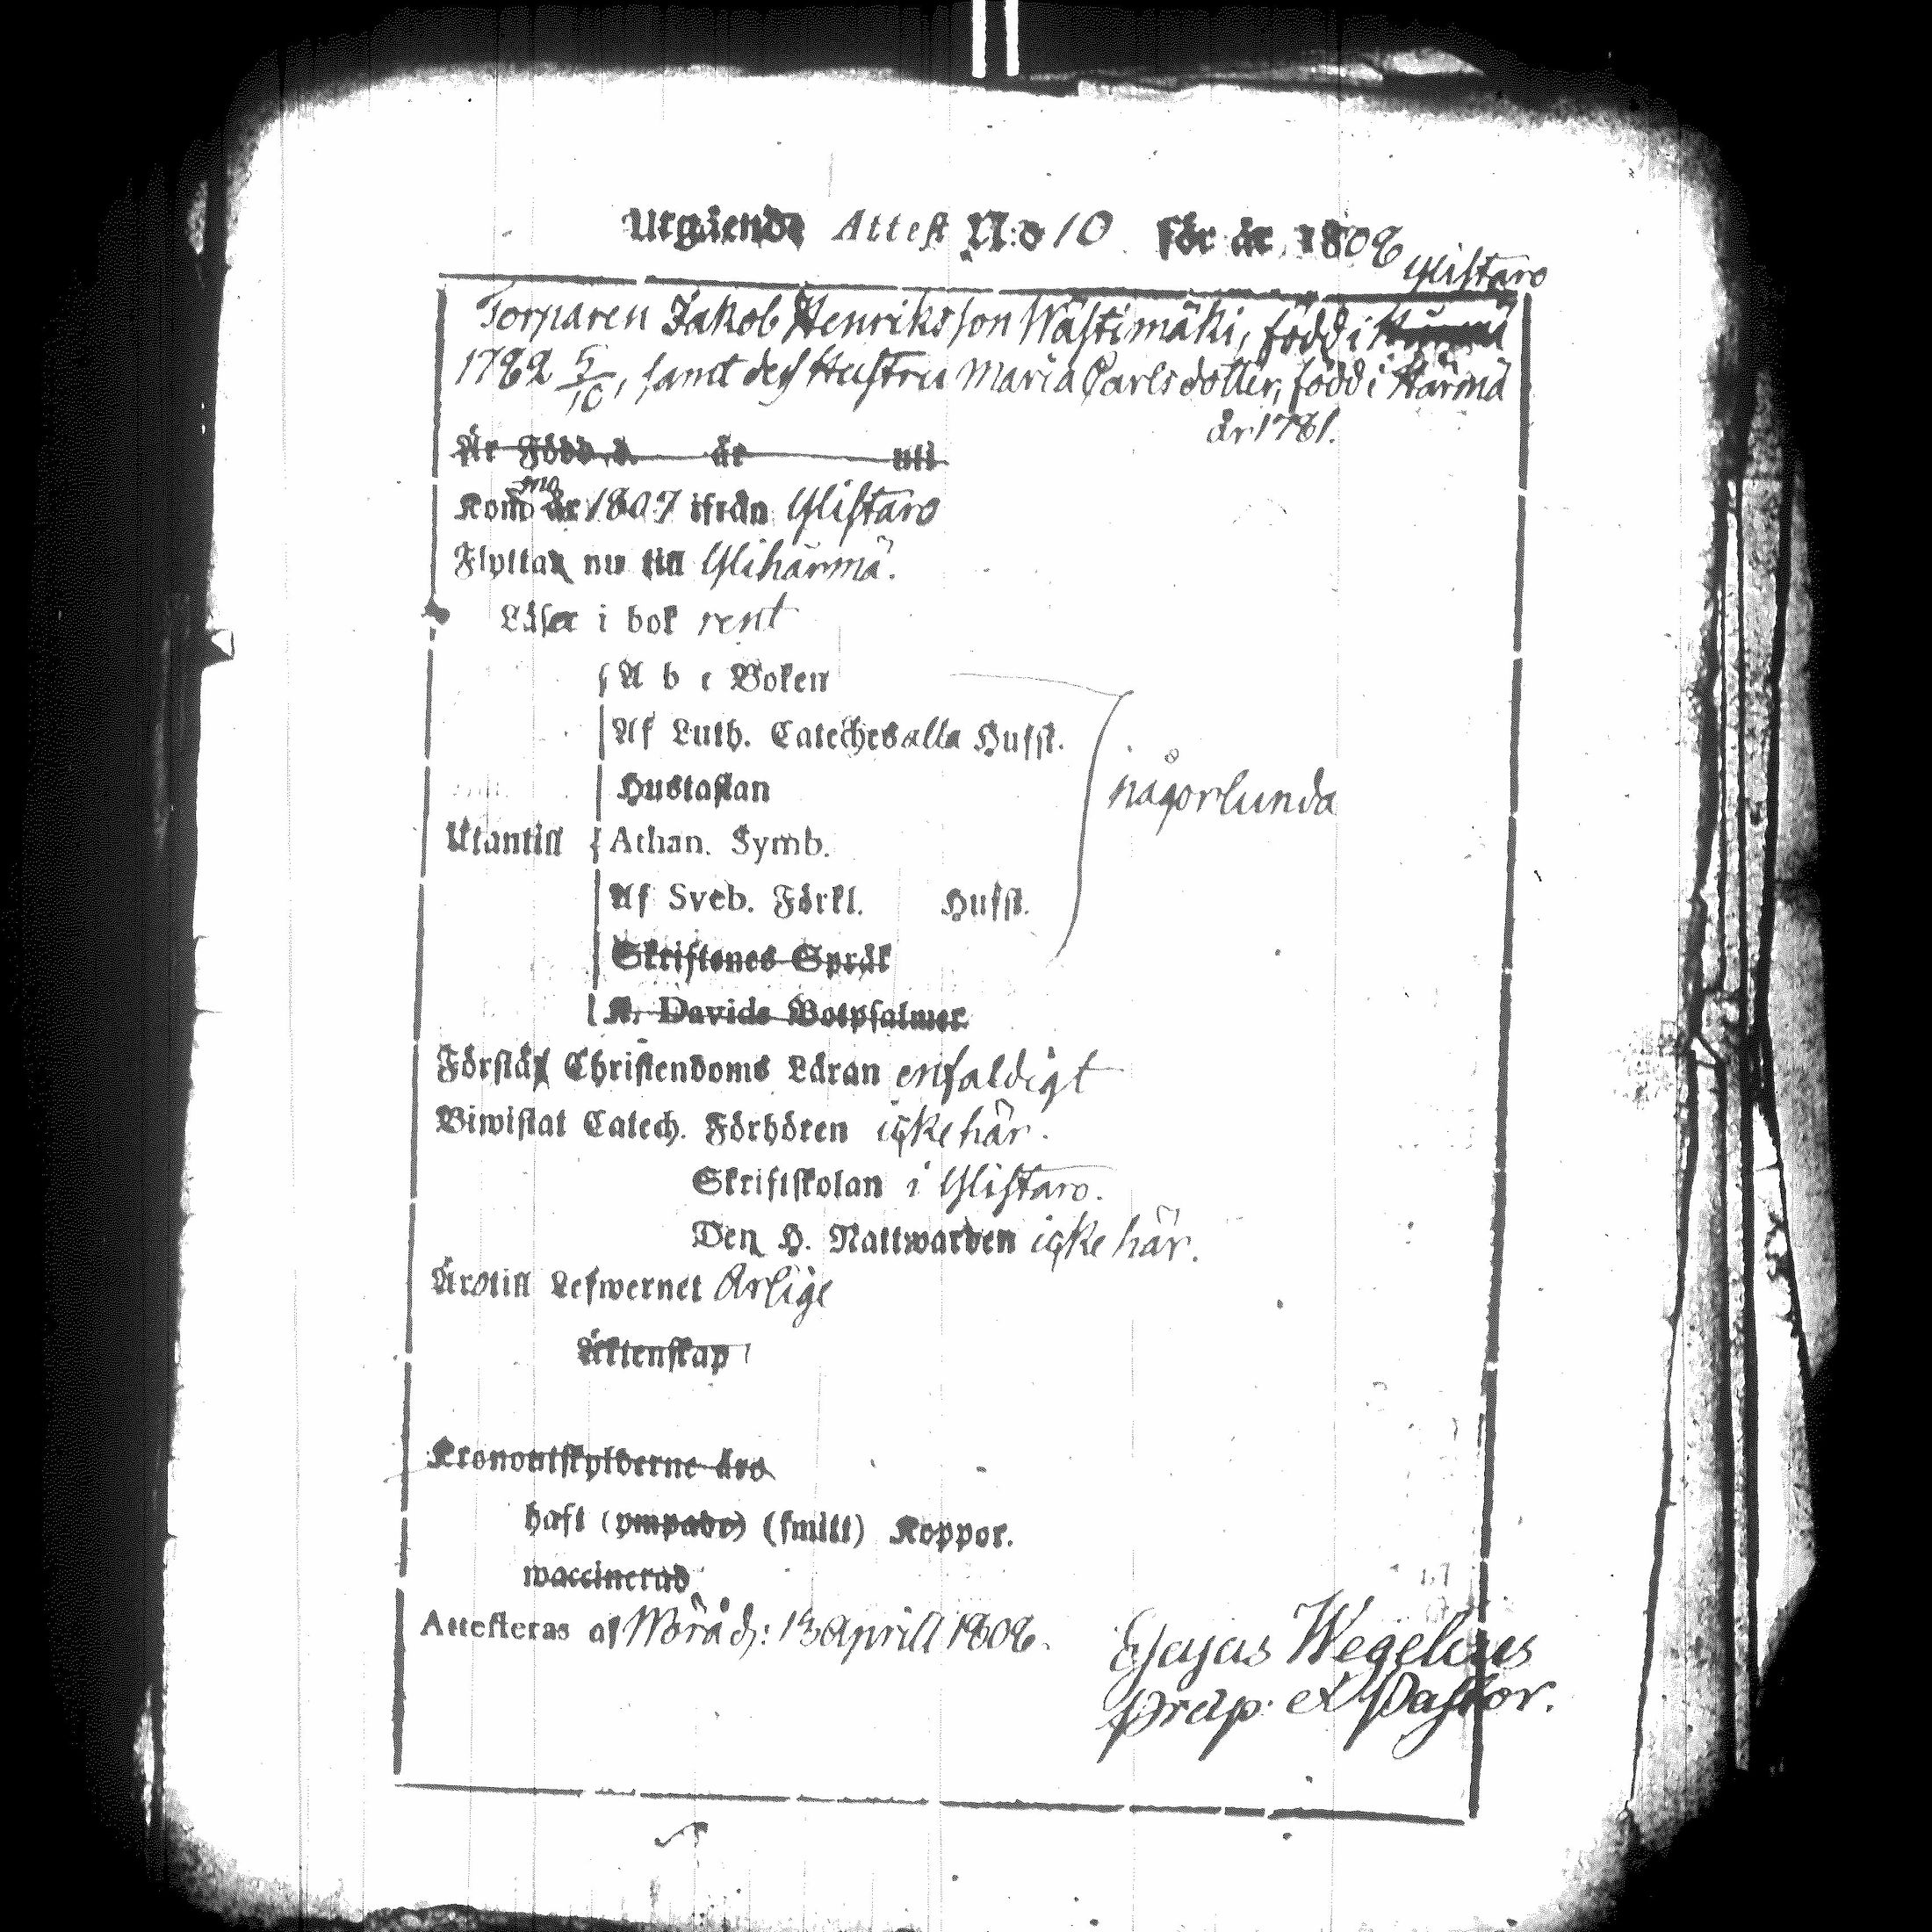 Utgående Attest N:o 10 för år 1808
Ylistaro
Torparen Jakob Henriksson Wästimäki, född i
1782 5/10, samt dess Hustru Maria Carlsdotter, född i Härmä
år 1781.
Är Född d. år uti
Kom år 1807 ifrån Ylistaro
Flytta nu till Ylihärmä.
Läser i bok rent
A b c Boken
Af Luth. Cateches alla Hufst.
Hustaflan
någorlunda
Utantill Athan. Symb.
Af Sveb. Förkl. Hufst.
Skriftenes Språk
K. Davids Botpsalmer
Förstå Christendoms Läran enfaldigt
Biwistat Catech. Förhören icke här.
Skriftskolan i Ylistaro.
Den H. Nattwarden icke här.
Äro till Lefwernet Ärlige
Äcktenskap
Kronoutskylderne äro
haft (ympade) (smitt) Koppor.
waccinerad
Attesteras af Wörå d: 13 Aprill 1808.
Esajas Wegelius
Præp: et Pastor.